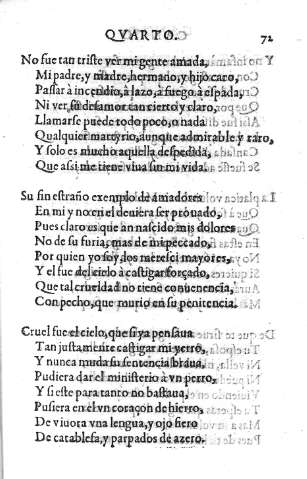 QVARTO. 72
No fue tan triste ver mi gente amada,
Mi padre, y madre, hermano, y hijo caro,
Passar à incendio, à lazo, a fuego à espada,
Ni ver su desamor tan cierto y claro,
Llamarse puede todo poco, o nada
Qualquier martyrio, aunque admirable y raro,
Y solo es mucho aquella despedida,
Que assi me tiene viua sin mi vida.
Su fin estraño exemplo de amadores
En mi y no en el deuiera ser prouado,
Pues claro es que an nascido mis dolores
No de su furia, mas de mi peccado,
Por quien yo soy los meresci mayores,
Y el fue del cielo à castigar forçado,
Que tal crueldad no tiene conuenencia,
Con pecho, que murio en su penitencia.
Cruel fue el cielo, que si ya pensaua
Tan justamente castigar mi yerro,
Y nunca muda su sentencia braua,
Pudiera dar el ministerio à vn perro,
Y si este para tanto no bastaua,
Pusiera en el vn coraçon de hierro,
De viuora vna lengua, y ojo fiero
De catablesa, y parpados de azero.